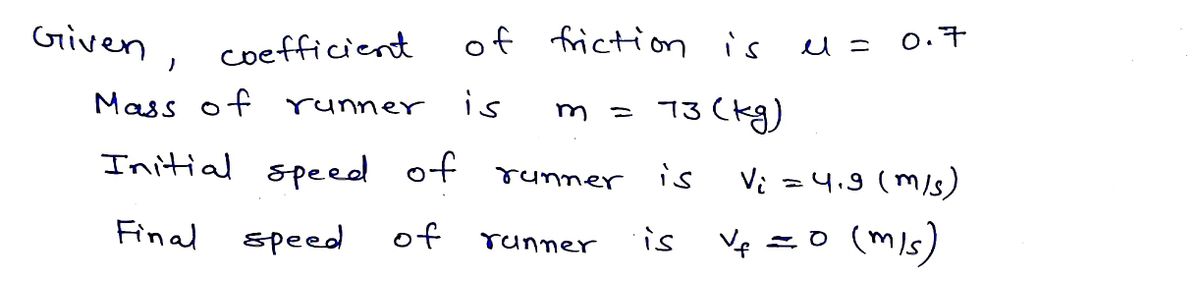 Given, coefficient of friction is μ = 0.7
Mass of runner is m = 73 (kg)
Initial speed of runner is Vi = 4.9 (m/s)
Final speed of runner is Vf = 0 (m/s)